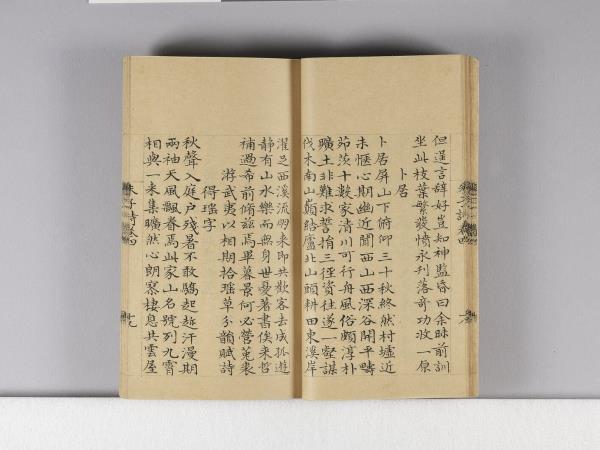 但逞言辭好豈知神監昏曰余昧前訓
坐此枝葉繁發憤永刋落奇功收一原
卜居
卜居屏山下俯仰三十秋終然村墟近
未愜心期幽近聞西山西深谷開平疇
茆茨十數家清川可行舟風俗頗淳朴
曠土非難求誓捐三徑資往遂一壑謀
伐木南山巔結廬北山頭耕田東溪岸
濯足西溪流朋來即共歡客去成孤遊
靜有山水樂而無身世憂著書俟來哲
補過希前脩茲焉畢暮景何必營菟裘
游武夷以相期拾瑤草分韻賦詩
得瑤字
秋聲入庭户殘暑不敢驕起趂汗漫期
兩袖天風飄眷焉此家山名號列九霄
相與一來集曠然心朗寥棲息共雲屋
朱子詩卷四
十九